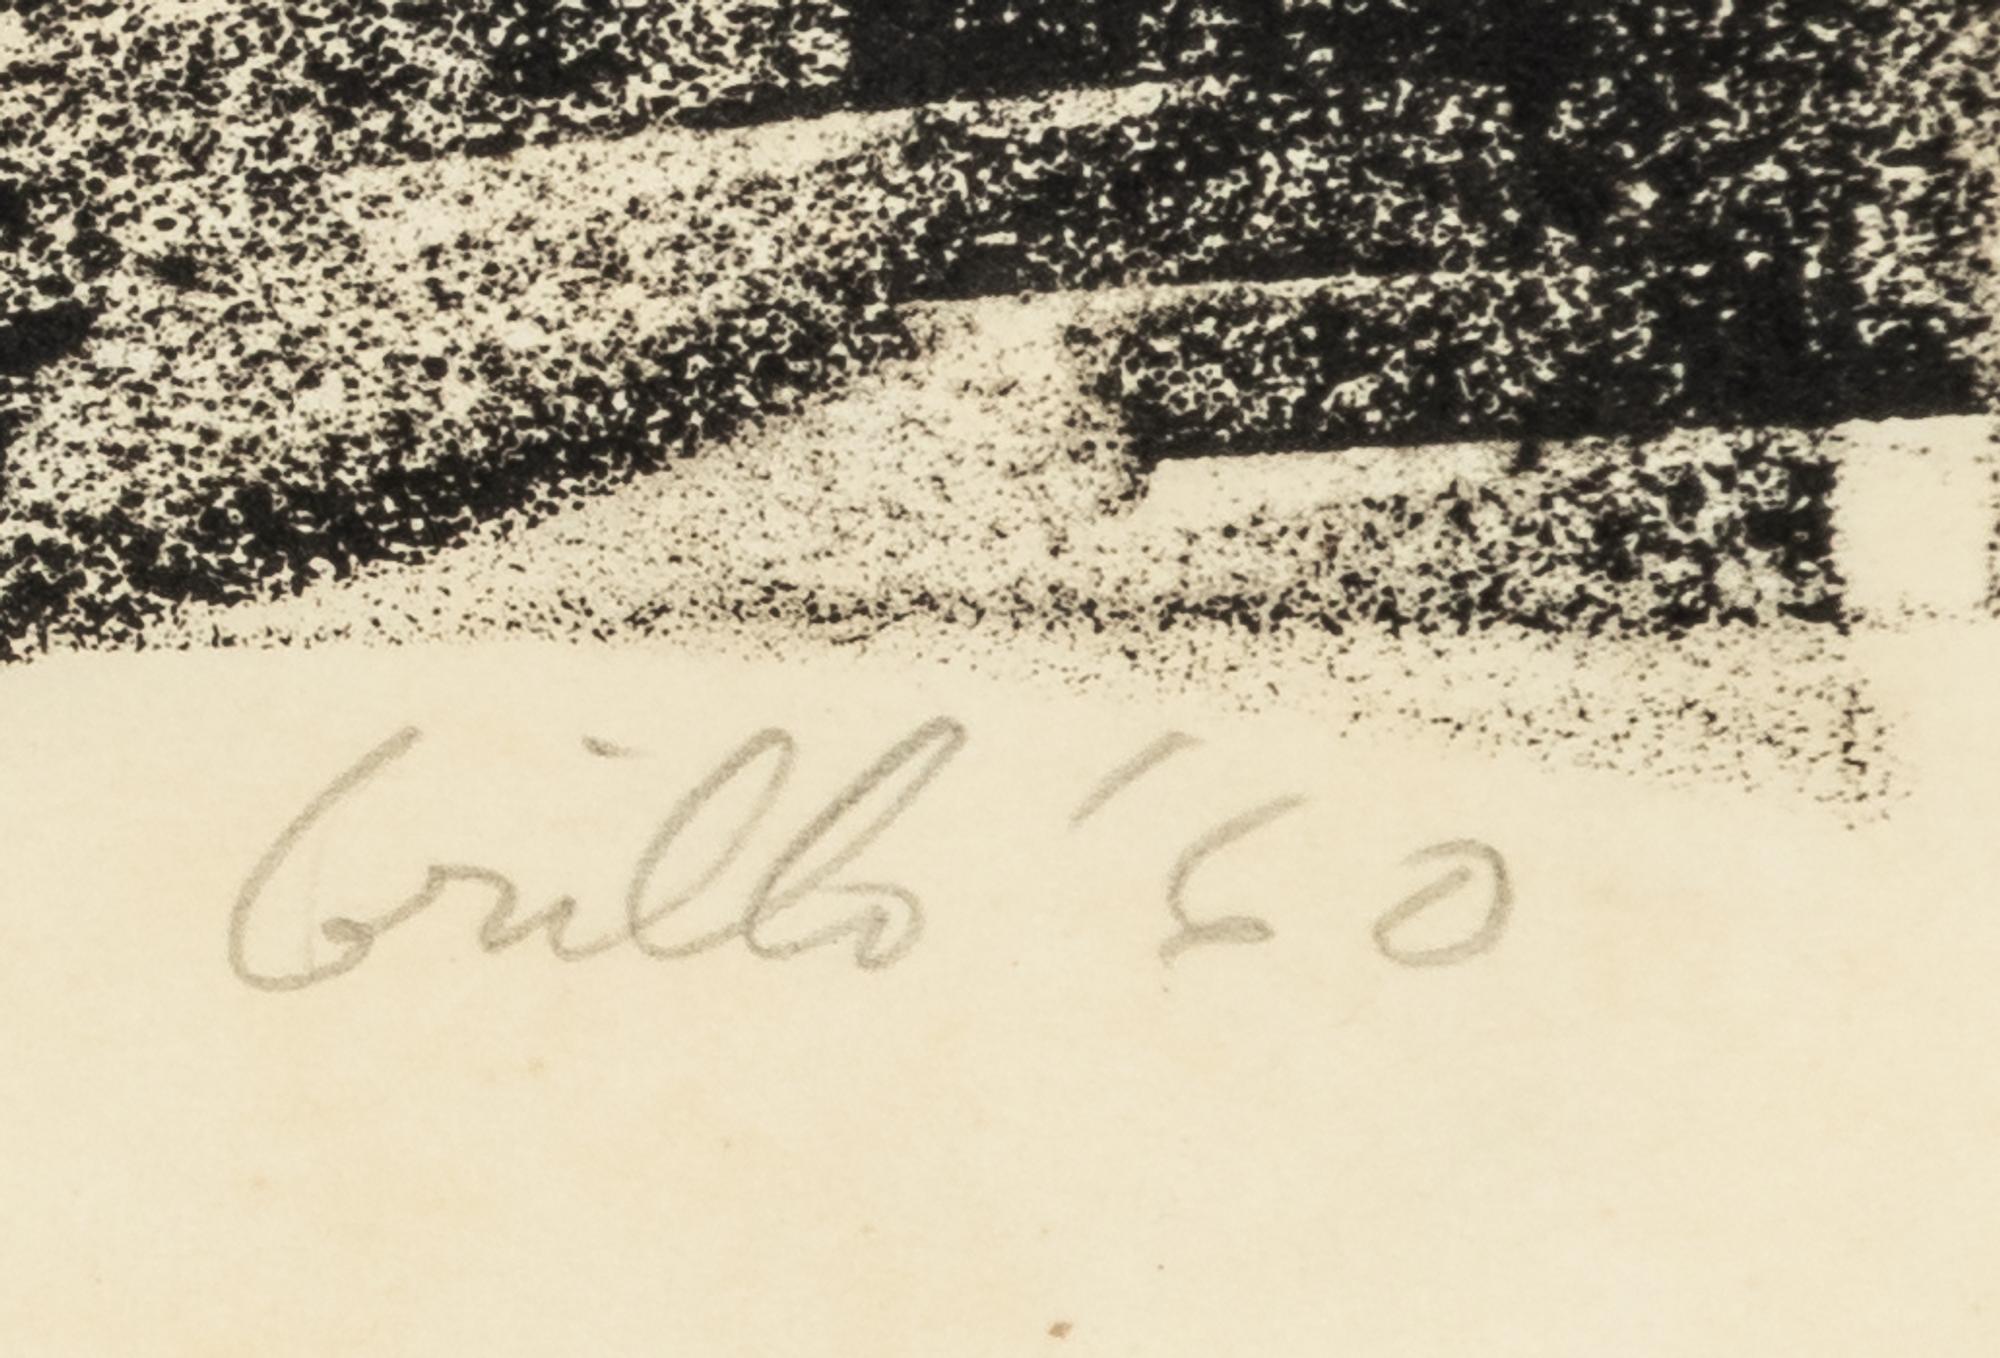 Grillo '60